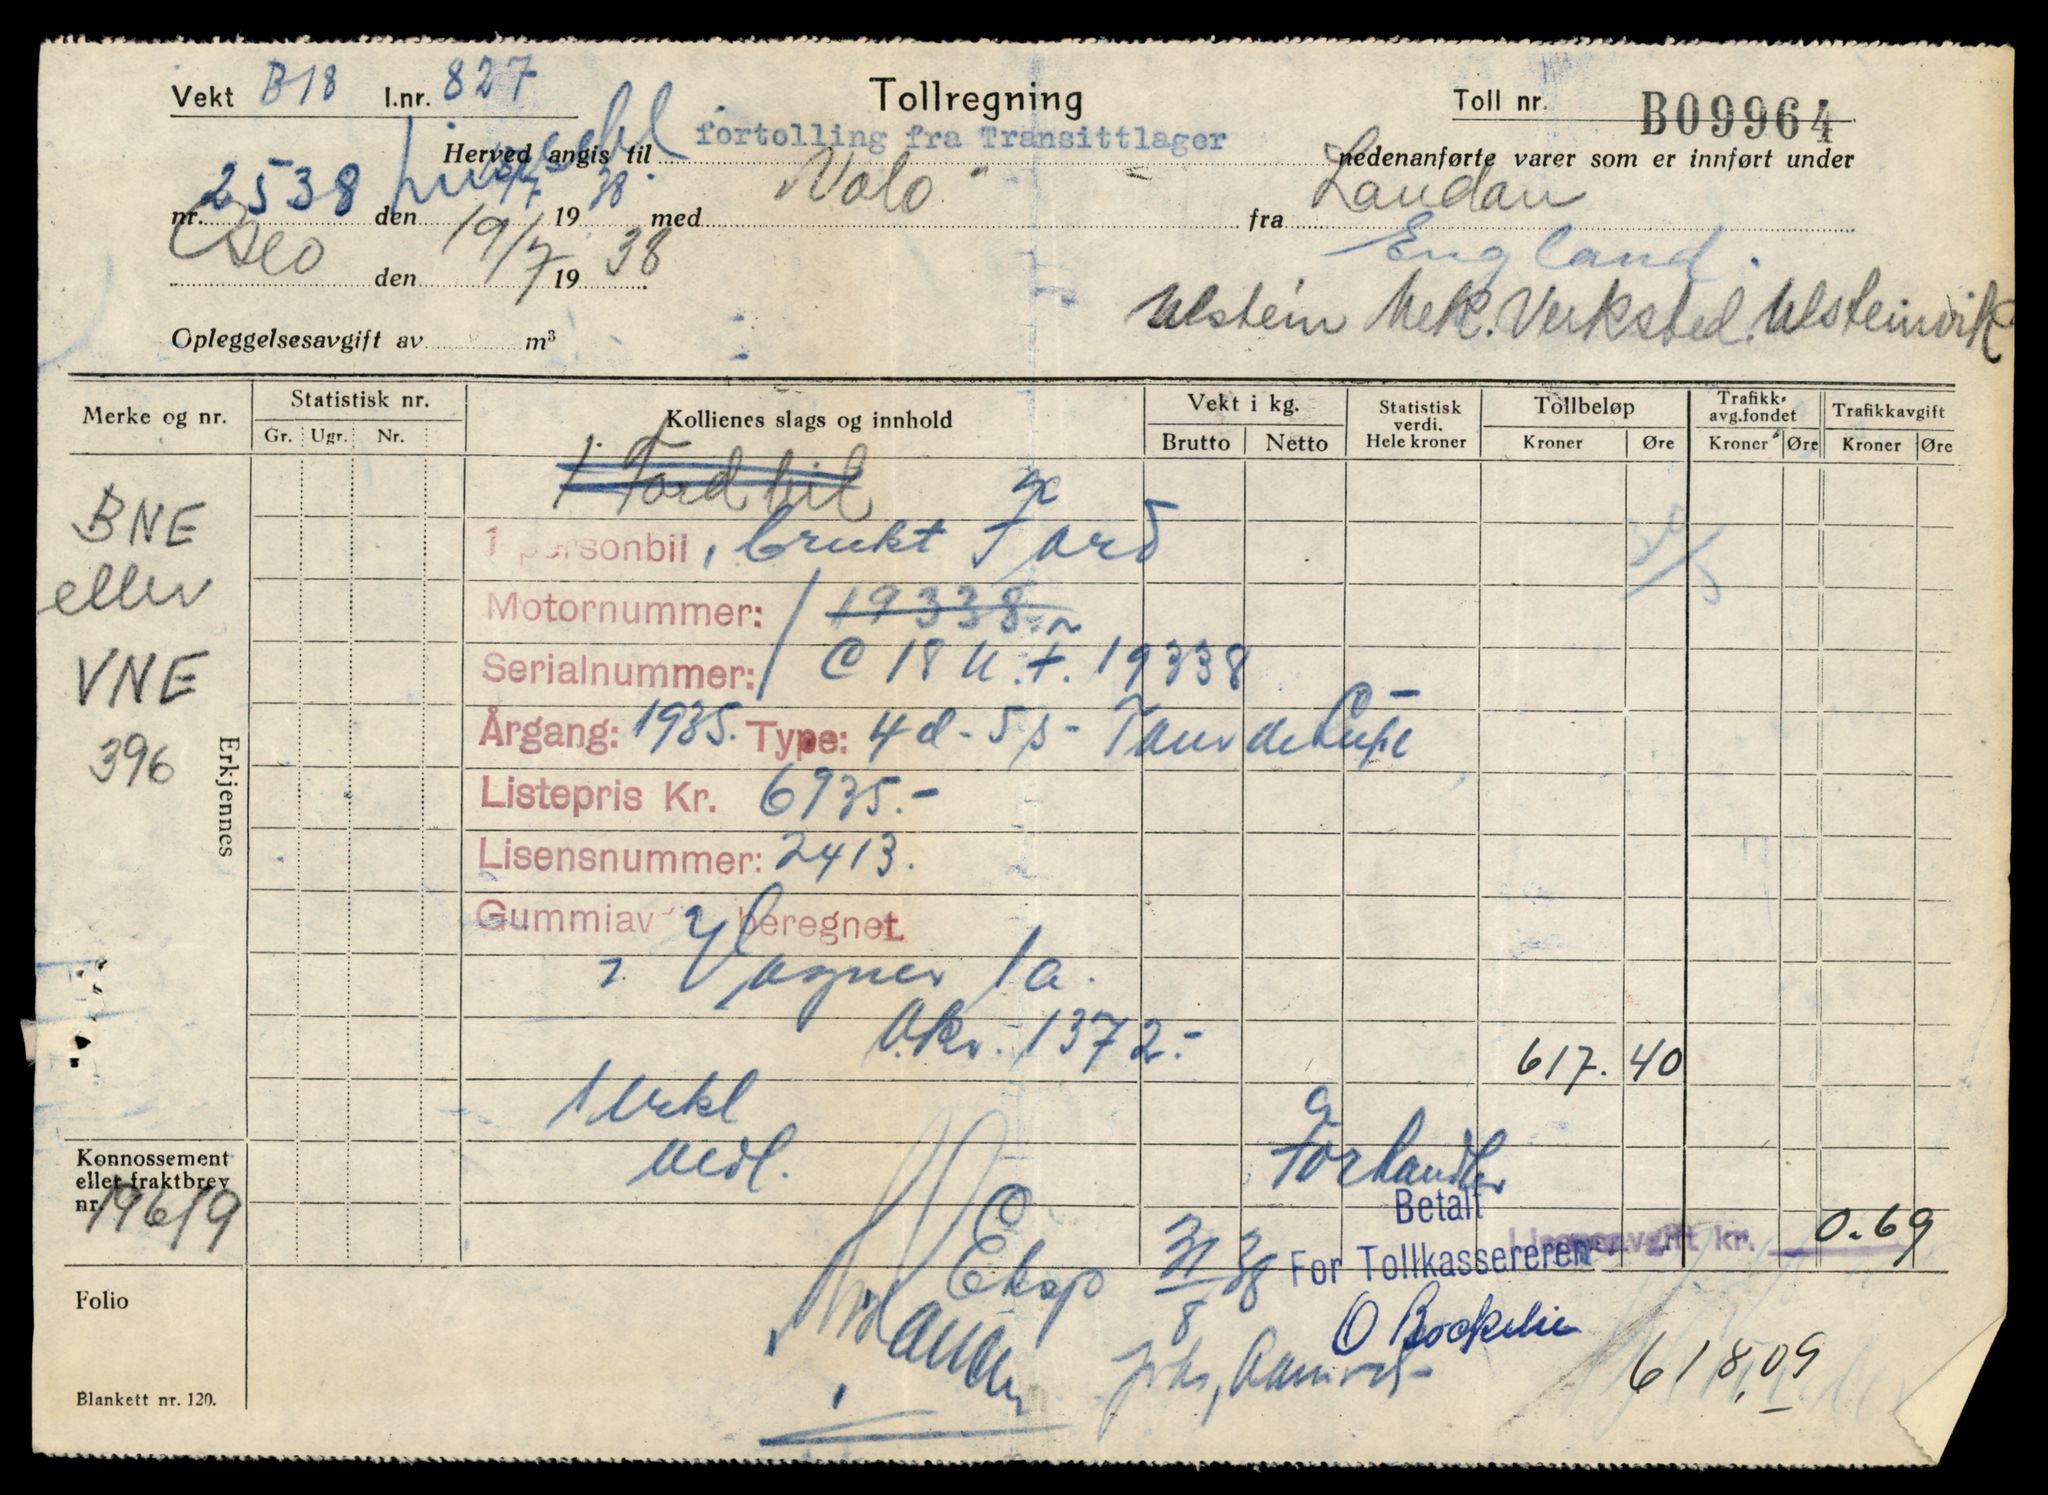 Vekt B18 l.nr. 827 Tollregning Toll nr. B09964
Herved angis til fortolling fra Transittlager nedenanførte varer som er innført under
nr. 2538 den 19 38. med "Volo" fra London
England.
Oslo den 19/7 19 38
Ulstein Mek. Verksted. Ulsteinvik
Opleggelsesavgift av m³
Merke og nr. Statistisk nr. Kollienes slags og innhold Vekt i kg. Statistisk verdi. Hele kroner Tollbeløp Trafikk-avg.fondet Trafikkavgift
Gr. Ugr. Nr. Brutto Netto Kroner Øre Kroner Øre Kroner Øre
1 Ford bil
BNE
eller
VNE
396
Erkjennes
1 personbil, brukt Ford
Motornummer: 19338
Serialnummer: C 18 U.F. 19338
Årgang: 1935. Type: 4 d - 5 p -
Listepris Kr. 6935.-
Lisensnummer: 2413.
Gummiav beregnet.
Vogner 1a.
Vkr. 1372.-
617.40
1 erkl
vedl.
Forhandler
Konnossement
eller fraktbrev
nr. 19619
Betalt
Lisensavgift kr. 0.69
For Tollkassereren
Eksp 31/8 38
Folio
618,09
Blankett nr. 120.